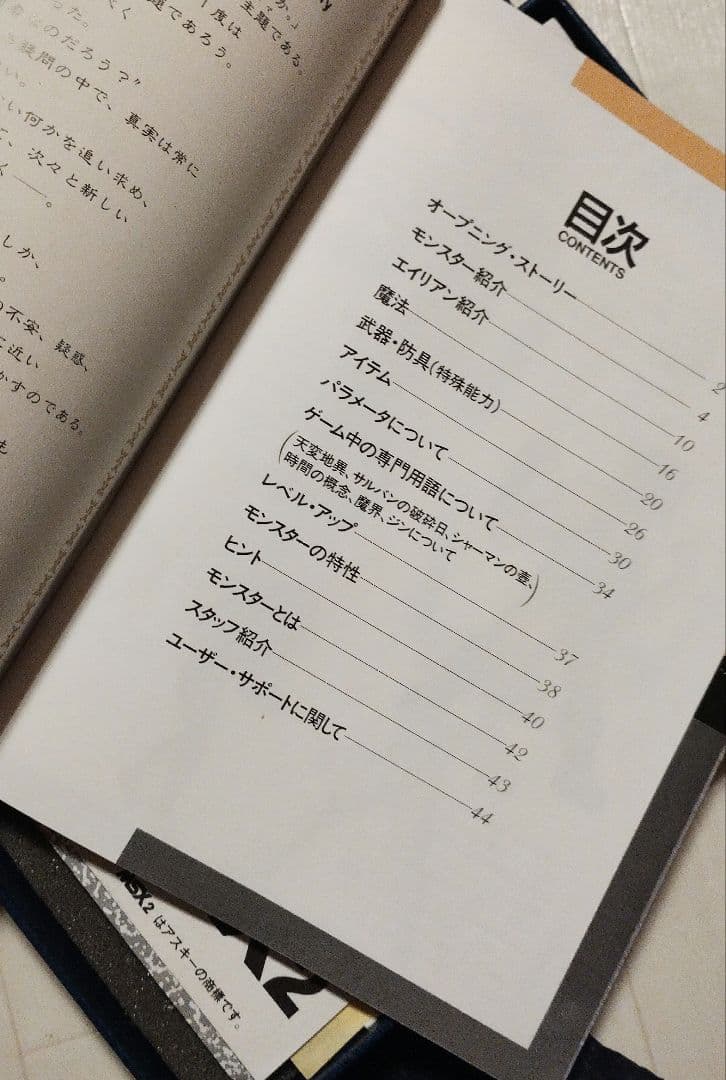 主題である。
題であろう。
のだろう？”
疑問の中で、真実は常に
い何かを追い求め、
、次々と新しい
く――。
しか、
不安、疑惑、
に近い
かすのである。
も
目次
CONTENTS
オープニング・ストーリー 2
モンスター紹介 4
エイリアン紹介 10
魔法 16
武器・防具(特殊能力) 20
アイテム 26
パラメータについて 30
ゲーム中の専門用語について 34
(天変地異、サルバンの破砕日、シャーマンの壺、
時間の概念、魔界、ジンについて)
レベル・アップ 37
モンスターの特性 38
ヒント 40
モンスターとは 42
スタッフ紹介 43
ユーザー・サポートに関して 44
MSX2はアスキーの商標です。